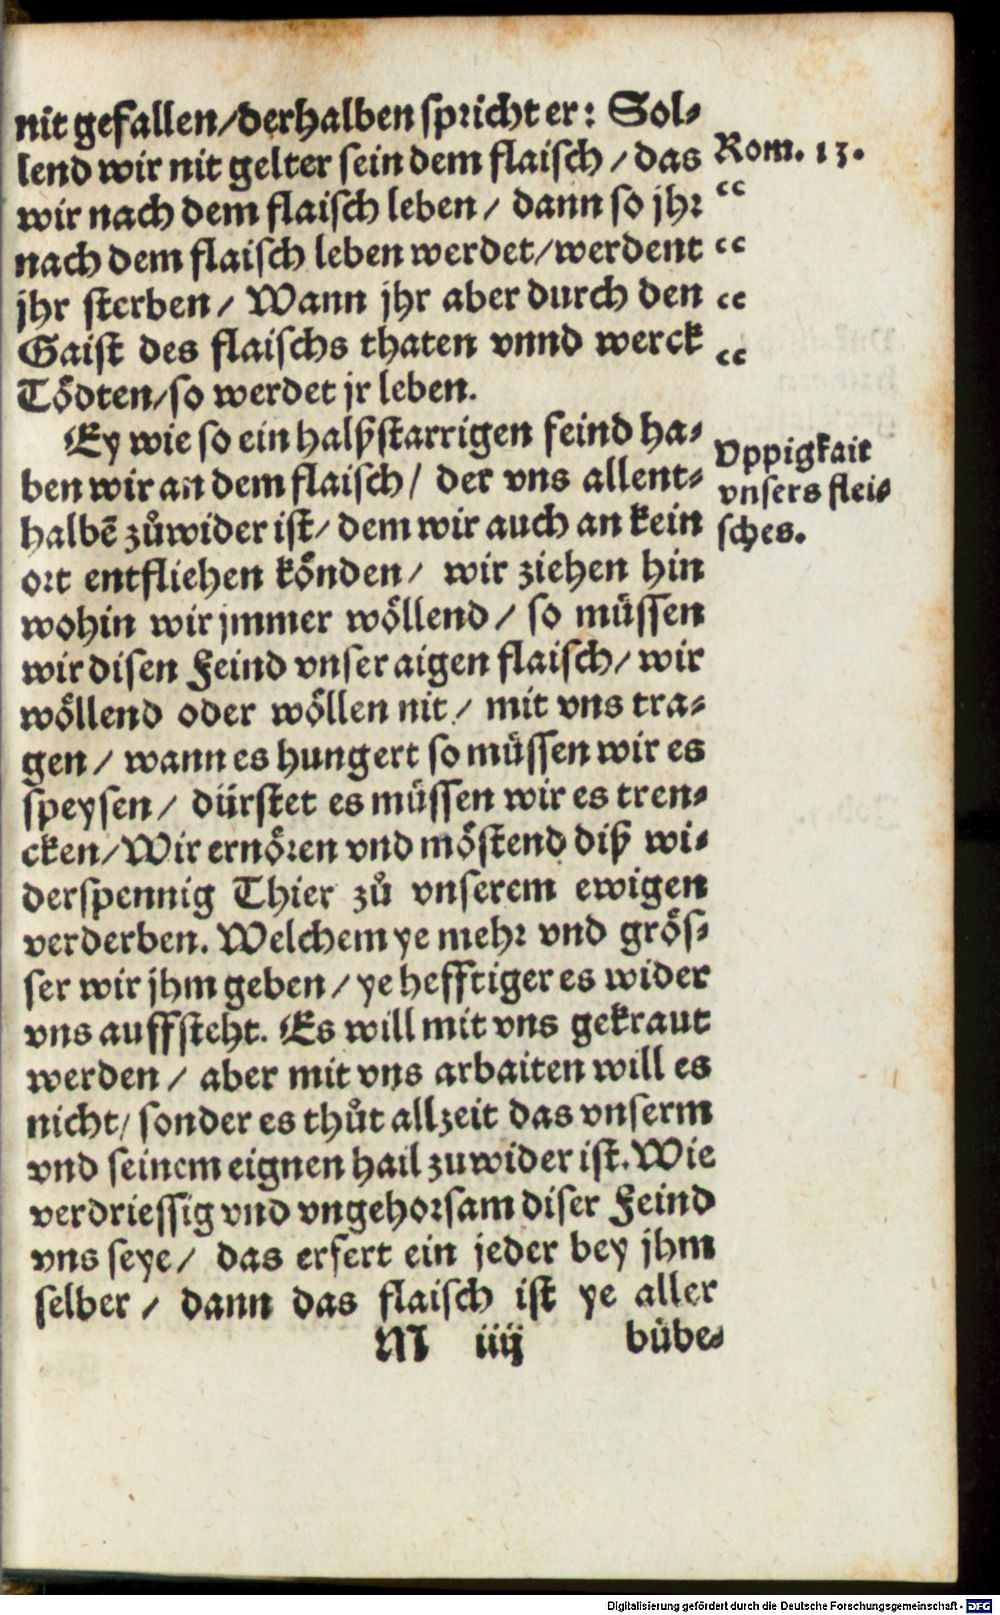 nit gefallen/derhalben spricht er: Sol⸗
lend wir nit gelter sein dem flaisch / das
wir nach dem flaisch leben / dann so jhr
nach dem flaisch leben werdet/werdent
jhr sterben / Wann jhr aber durch den
Gaist des flaischs thaten vnnd werck
Tödten/so werdet jr leben.
Rom. 13.
“
“
“
“
Ey wie so ein halßstarrigen feind ha⸗
ben wir an dem flaisch / der vns allent⸗
halbē zůwider ist/ dem wir auch an kein
ort entfliehen könden / wir ziehen hin
wohin wir jmmer wöllend / so müssen
wir disen Feind vnser aigen flaisch/ wir
wöllend oder wöllen nit / mit vns tra⸗
gen / wann es hungert so müssen wir es
speysen / dürstet es müssen wir es tren⸗
cken/Wir ernören vnd möstend diß wi⸗
derspennig Thier zů vnserem ewigen
verderben. Welchem ye mehr vnd grös⸗
ser wir jhm geben / ye hefftiger es wider
vns auffsteht. Es will mit vns gekraut
werden / aber mit vns arbaiten will es
nicht/ sonder es thůt allzeit das vnserm
vnd seinem eignen hail zuwider ist. Wie
verdriessig vnd vngehorsam diser Feind
vns seye / das erfert ein jeder bey jhm
selber / dann das flaisch ist ye aller
Vppigkait
vnsers flei⸗
sches.
M iiij bübe⸗
Digitalisierung gefördert durch die Deutsche Forschungsgemeinschaft - DFG